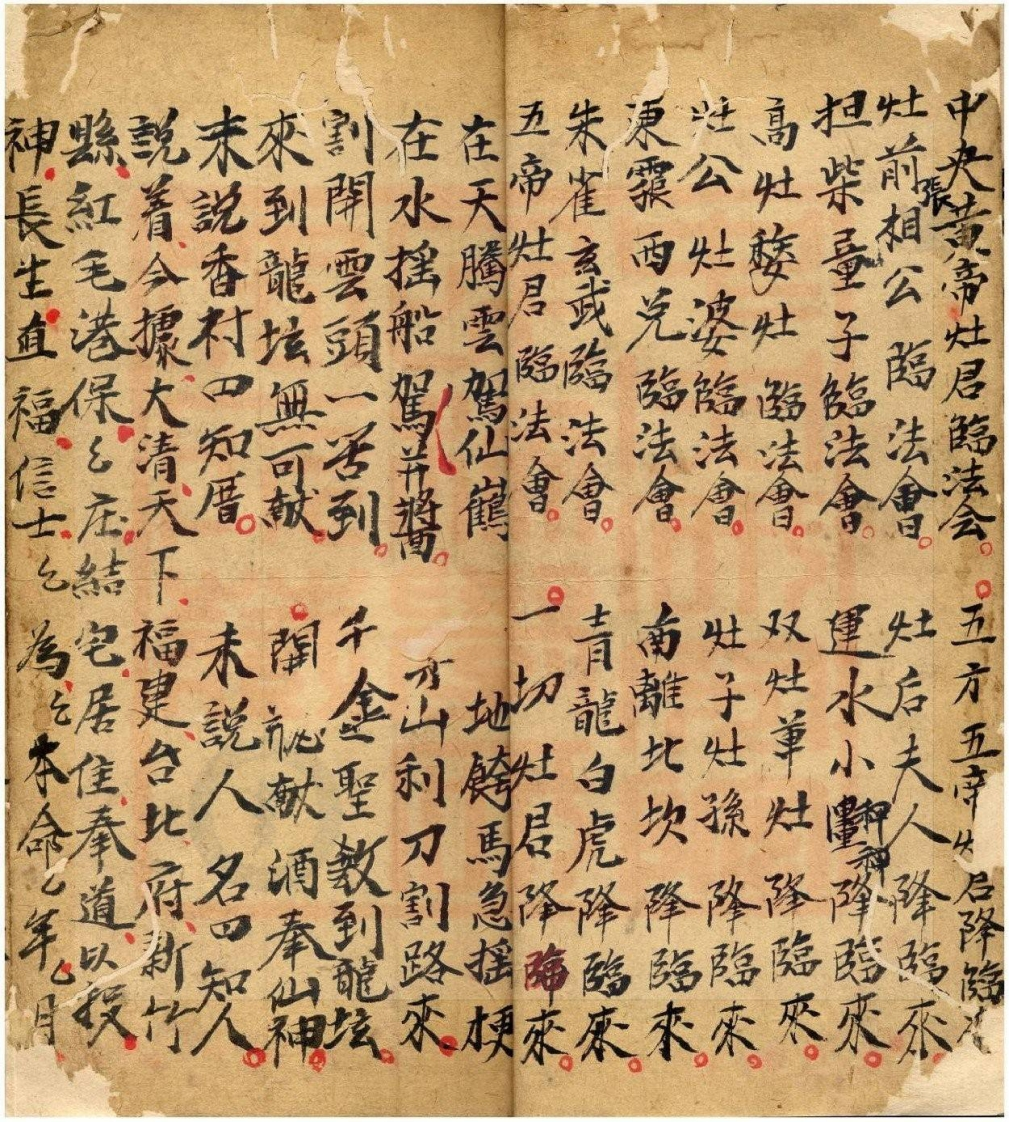 中央黃帝灶君臨法会 五方五帝灶君降臨來
灶前張相公臨法會 灶后夫人降臨來
担柴童子臨法會 運水小童神降臨來
高灶矮灶臨法會 双灶单灶降臨來
灶公灶婆臨法會 灶子灶孫降臨來
東震西兌臨法會 南離北坎降臨來
朱雀玄武臨法會 青龍白虎降臨來
五帝灶君臨法會 一切灶君降臨來
在天騰雲駕仙鶴 地餎馬急摇梗
在水摇船駕并槳 刀山利刀割路來
割開雲頭一答到 千金聖教到龍坛
來到龍坛無可献 開瓶献酒奉仙神
未說香村四知厝 未說人名四知人
說着今據大清天下福建台北府新竹
縣紅毛港保乙庄結宅居住奉道以投
神長生直福信士乙為乙本命乙年乙月